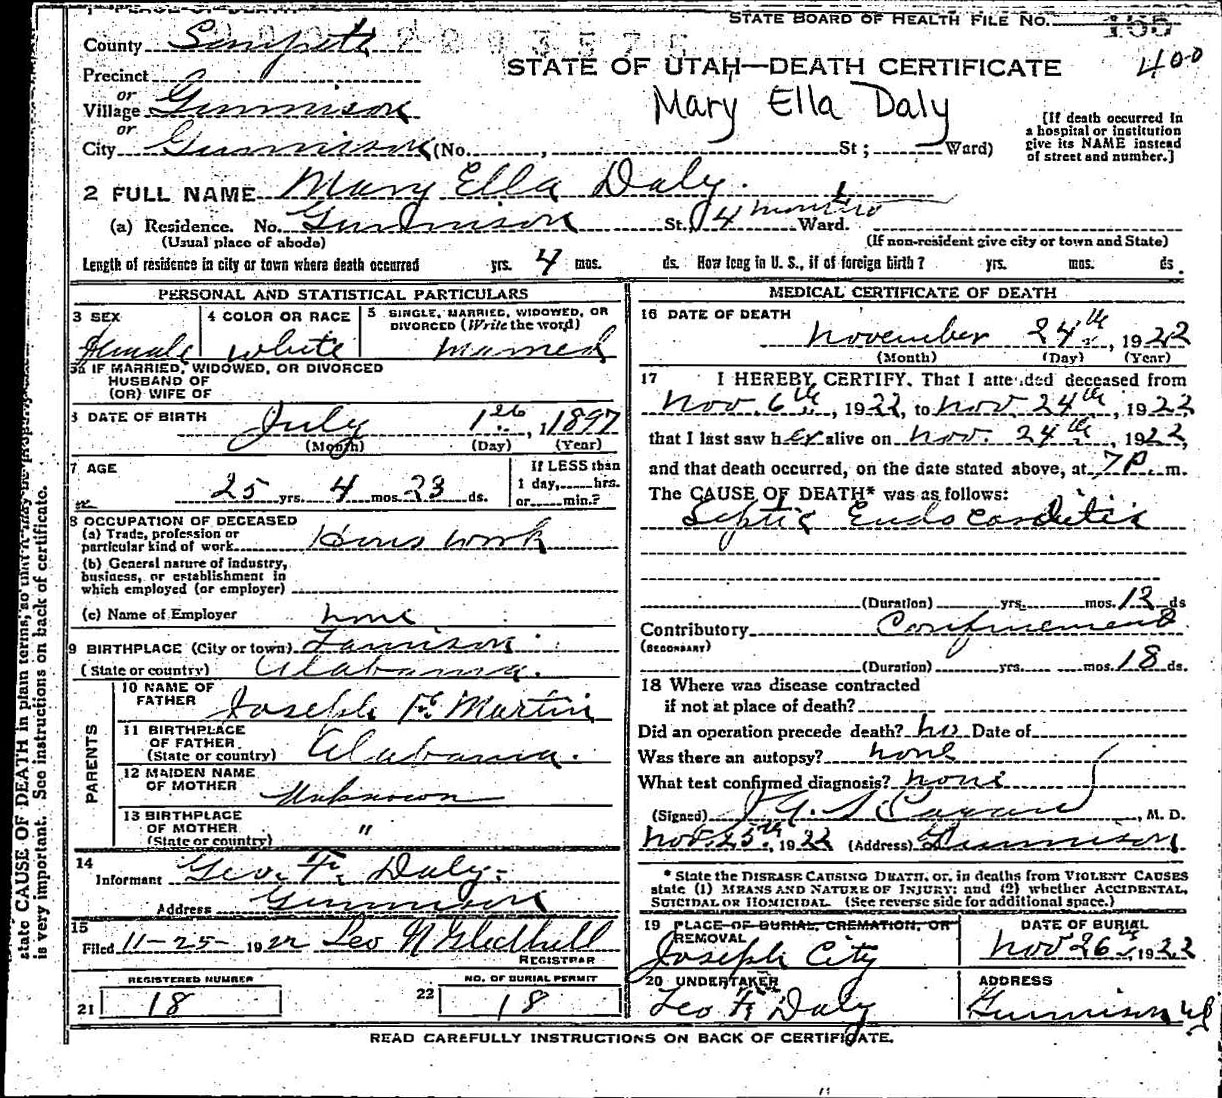 STATE BOARD OF HEALTH FILE No. 155
400
County Sanpete
STATE OF UTAH—DEATH CERTIFICATE
Mary Ella Daly
Precinct
or
Village Gunnison
or
City Gunnison (No. , St ; Ward)
[If death occurred in
a hospital or institution
give its NAME instead
of street and number.]
2 FULL NAME Mary Ella Daly.
(a) Residence. No. Gunnison St. 4 months Ward.
(Usual place of abode) (If non-resident give city or town and State)
Length of residence in city or town where death occurred yrs. 4 mos. ds. How long in U. S., if of foreign birth? yrs. mos. ds.
PERSONAL AND STATISTICAL PARTICULARS
3 SEX Female
4 COLOR OR RACE white
5 SINGLE, MARRIED, WIDOWED, OR
DIVORCED (Write the word)
Married
5a IF MARRIED, WIDOWED, OR DIVORCED
HUSBAND OF
(OR) WIFE OF
6 DATE OF BIRTH July 1st, 1897
(Month) (Day) (Year)
7 AGE
25 yrs. 4 mos. 23 ds.
If LESS than
1 day, hrs.
or min.?
8 OCCUPATION OF DECEASED
(a) Trade, profession or
particular kind of work Hous work
(b) General nature of industry,
business, or establishment in
which employed (or employer)
(c) Name of Employer none
9 BIRTHPLACE (City or town)
(State or country) Alabama.
PARENTS
10 NAME OF
FATHER Joseph F. Martin
11 BIRTHPLACE
OF FATHER
(State or country) Alabama.
12 MAIDEN NAME
OF MOTHER Unknown
13 BIRTHPLACE
OF MOTHER "
(State or country)
14
Informant Geo. F. Daly.
Address Gunnison
15
Filed 11-25-1922 Leo N Gledhill
REGISTRAR
REGISTERED NUMBER
21 18
NO. OF BURIAL PERMIT
22 18
MEDICAL CERTIFICATE OF DEATH
16 DATE OF DEATH
November 24th, 1922
(Month) (Day) (Year)
17 I HEREBY CERTIFY, That I attended deceased from
Nov 6th, 1922, to Nov. 24th, 1922
that I last saw her alive on Nov. 24th, 1922,
and that death occurred, on the date stated above, at 7 P. m.
The CAUSE OF DEATH* was as follows:
Septic Endocarditis
(Duration) yrs. mos. 12 ds
Contributory Confinement
(SECONDARY)
(Duration) yrs. mos. 18 ds.
18 Where was disease contracted
if not at place of death?
Did an operation precede death? no Date of
Was there an autopsy? none
What test confirmed diagnosis? none
(Signed) , M. D.
Nov. 25th, 1922 (Address) Gunnison
* State the DISEASE CAUSING DEATH, or, in deaths from VIOLENT CAUSES
state (1) MEANS AND NATURE OF INJURY; and (2) whether ACCIDENTAL,
SUICIDAL OR HOMICIDAL. (See reverse side for additional space.)
19 PLACE OF BURIAL, CREMATION, OR
REMOVAL
Joseph City
DATE OF BURIAL
Nov 26th, 1922
20 UNDERTAKER
Leo F. Daly
ADDRESS
Gunnison
READ CAREFULLY INSTRUCTIONS ON BACK OF CERTIFICATE.
state CAUSE OF DEATH in plain terms, so that it may be properly
is very important. See instructions on back of certificate.